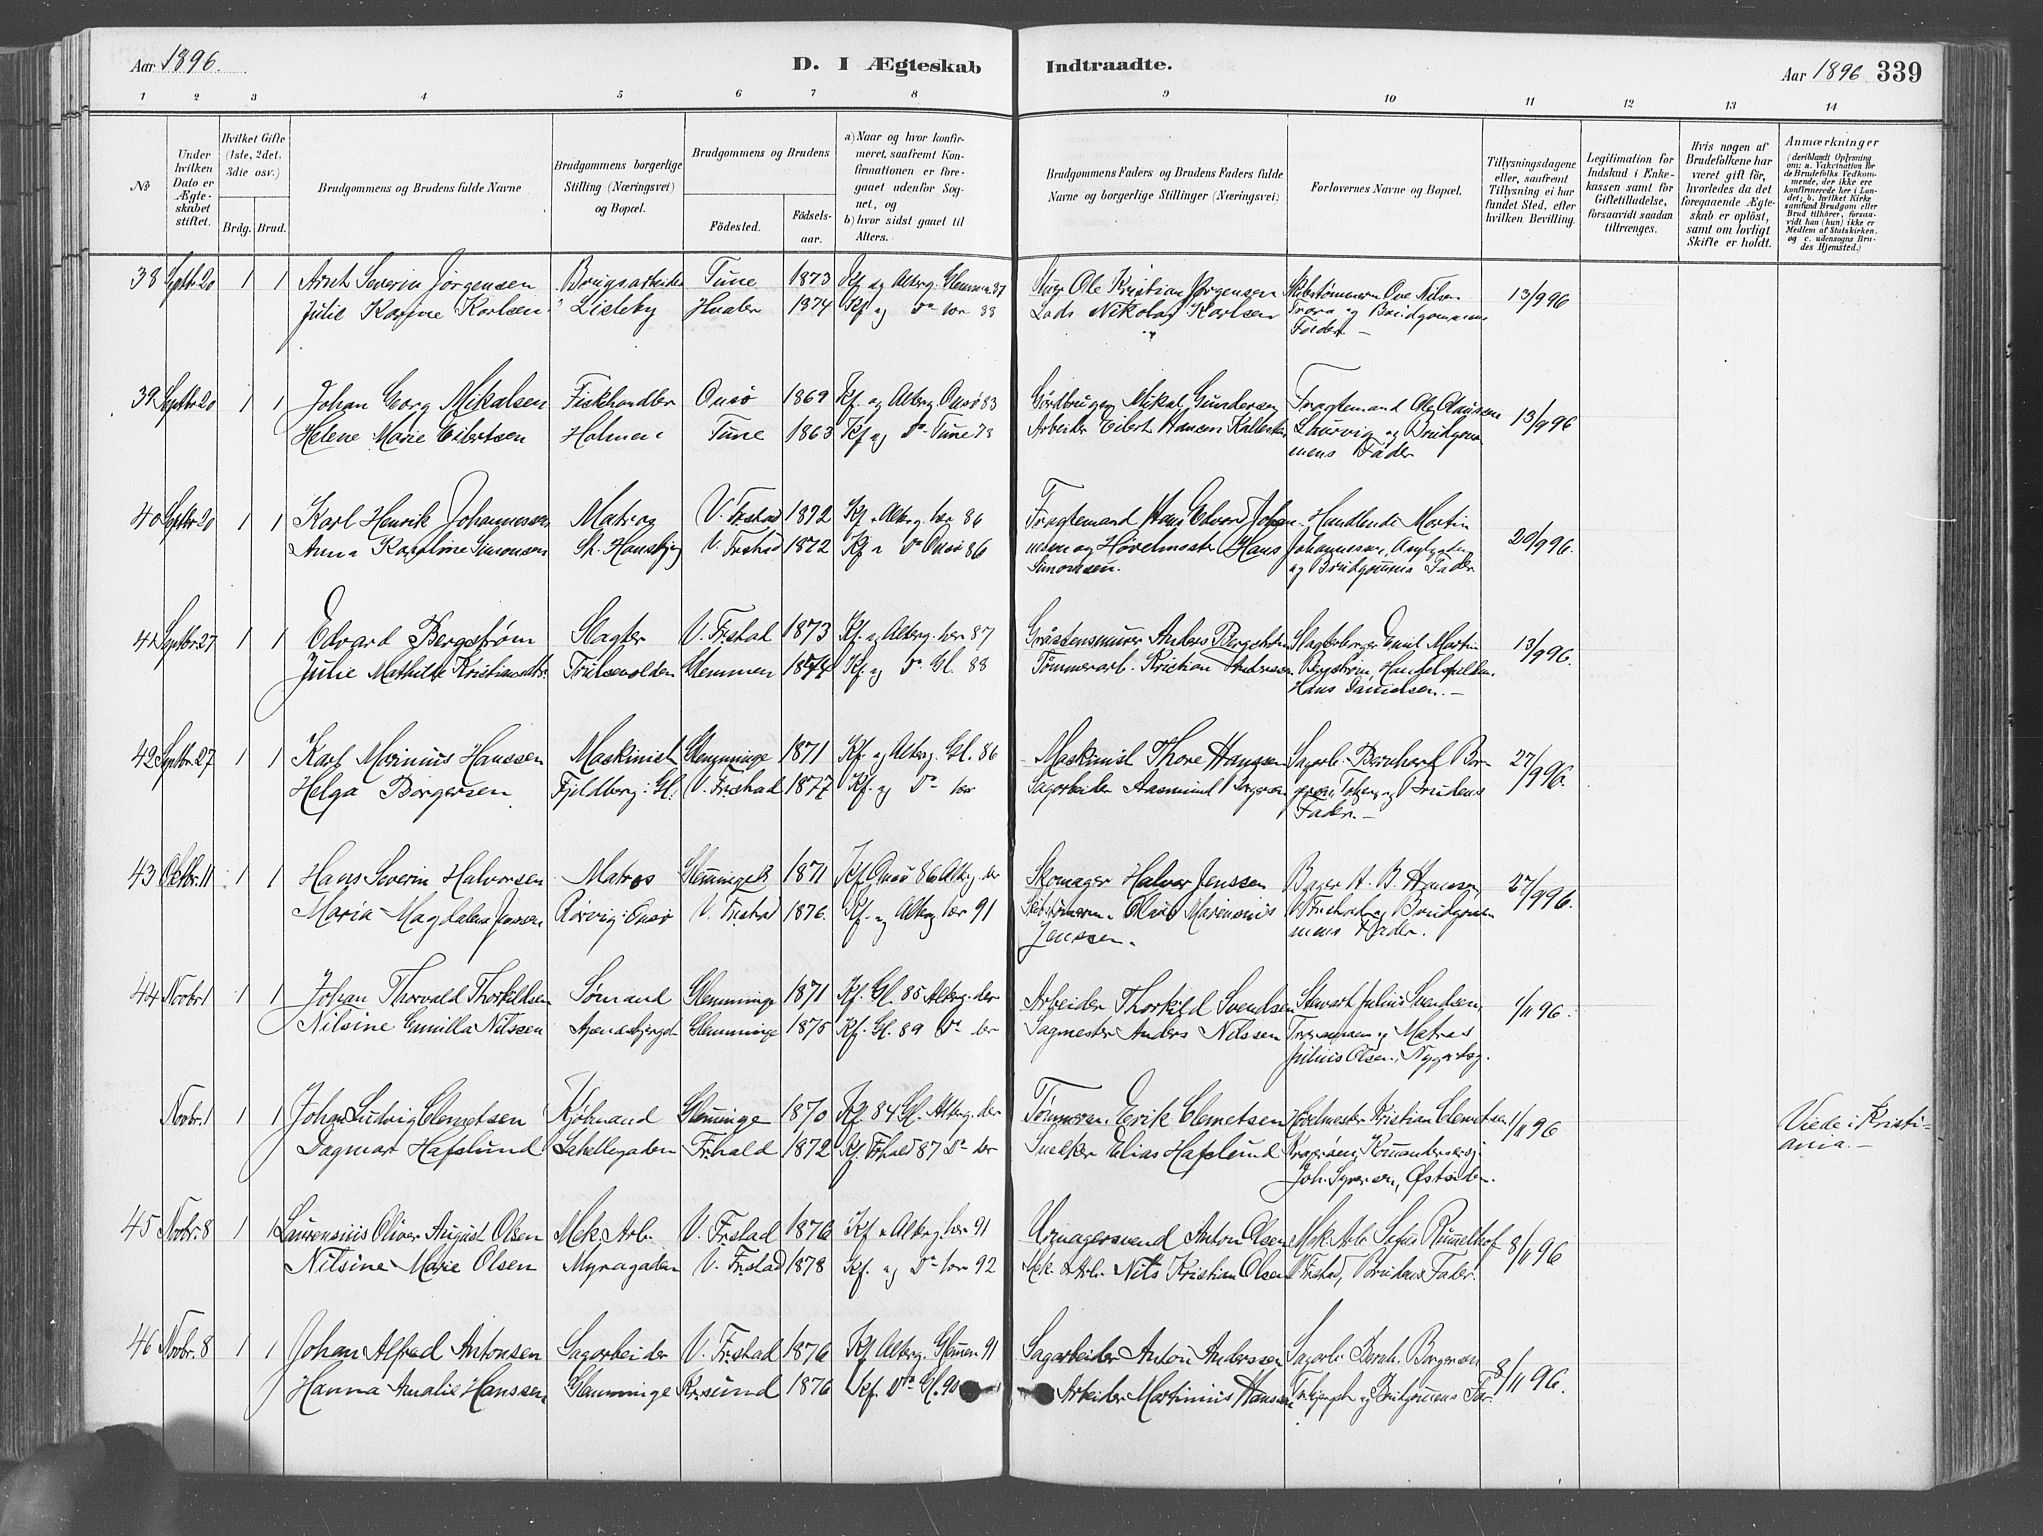 Aar 1896.
D. I Ægteskab Indtraadte.
Aar 1896 339
1 2 3 4 5 6 7 8 9 10 11 12 13 14
No
Under hvilken Dato er Ægteskabet stiftet.
Hvilket Gifte (1ste, 2det, 3die osv.)
Brdg. Brud.
Brudgommens og Brudens fulde Navne.
Brudgommens borgerlige Stilling (Næringsvei) og Bopæl.
Brudgommens og Brudens
Födested. Födsels-aar.
a) Naar og hvor konfirmeret, saafremt Konfirmationen er foregaaet udenför Sognet, og
b) hvor sidst gaaet til Alters.
Brudgommens Faders og Brudens Faders fulde Navne og borgerlige Stillinger (Næringsvei)
Forlovernes Navne og Bopæl.
Tillysningsdagene eller, saafremt Tillysning ei har fundet Sted, efter hvilken Bevilling.
Legitimation for Indskud i Enkekassen samt for Giftetilladelse, forsaavidt saadan tiltrænges.
Hvis nogen af Brudefolkene har været gift för, hvorledes da det foregaaende Ægteskab er oplöst, samt om lovligt Skifte er holdt.
Anmærkninger
(deriblandt Oplysning om: a. Vakcination for de Brudefolks Vedkommende, der ikke ere konfirmerede her i Landet; b. hvilket Kirkesamfund Brudgom eller Brud tilhörer, forsaavidt han (hun) ikke er Medlem af Statskirken, og c. udensogns Brudes Hjemsted.)
38 Septbr 20 1 1 Severin Jørgensen Brugsarbeider Tune 1873 Kf og Altberg. Ole Kristian Jørgensen Ove Nilsen 13/9 96
Julie Karine Karlsen Lisleby Hvaler 1874 Kf og Do her 88 Nikolaj Karlsen Trara og Brudgommens
Fader. —
39 Septbr 20 1 1 Johan Georg Mikalsen Fiskhandler Onsø 1869 Kf. og Altberg Onsø 83 Mikal Gundersen Fragtemand Ole 13/9 96
Helene Marie Eilertsen Holmen Tune 1863 Kf og Do Tune 78 Arbeider Eilert Hansen Laurvig og Brudgom
mens Fader
40 Septbr 20 1 1 Karl Henrik Johannessen Matros V. Frstad 1872 Kf. Altberg. her 86 Fragtemand Hans Edvard Johan- Handlende Martin 20/9 96.
Anna Karoline Simonsen St. Hansbg V. Frstad 1872 Kf Do Onsø 86 nesen og Høvelmester Hans Johannesen,
Simonsen. og Brudgommens Fader
41 Septbr 27 1 1 Edvard Bergstrøm Slagter V. Frstad 1873 Kf. og Altberg. her 87 Gråstensmurer Anders Bergstrøm Slagterborger Emil Martin 13/9 96.
Julie Mathilde Kristiansdtr. Trulsevolden Glemmen 1874 Kf. og Do Gl. 88 Tømmerarb. Kristian Andresen Bergstrøm,
Hans Danielsen. —
42 Septbr. 27 1 1 Karl Marinius Hanssen Maskinist Glemminge 1871 Kf. og Altberg. Gl. 86 Maskinist Thore Hanssen Sagarb. Bernhard Bor- 27/9 96.
Helga Borgersen Fjeldberg i Gl. V. Frstad 1877 Kf. og Do her Sagarbeider Aasmund Borgersen gersen, og Brudens
Fader. —
43 Oktbr. 11 1 1 Hans Severin Halvorsen Matros Glemminge 1871 Kf Onsø 86 Altbg. der Skomager Halvor Jenssen Bager H. B. Hanssen 27/9 96.
Maria Magdalena Jenssen Rørvig i Onsø V. Frstad 1876. Kf. og Altberg her 91 Marensius V Frstad og Brudgom
Jenssen. mens Fader.
44 Novbr 1 1 1 Johan Thorvald Thorkildsen Sømand Glemminge 1871 Kf. Gl. 85 Altberg. der Arbeider Thorkild Svendsen Stuvart Julius Svendsen, 1/11 96.
Nilsine Gunilla Nilssen Glemminge 1875 Kf. Gl. 89 Do der Sagmester Anders Nilssen og Matros
Julius Olsen,
Novbr. 1 1 1 Johan Ludvig Clemetsen Kjøbmand Glemminge 1870 Kf. 84 Gl. Altberg. der Erik Clemetsen Høvelmester Kristian Clemetsen 1/11 96 Viede i Kristi-
Dagmar Hafslund Frhald 1872 Kf. Frhald 87 Do der Snekker Elias Hafslund ania. —
Joh. Syversen, Østsiden.
45 Novbr. 8 1 1 Laurensius Oliver August Olsen Mek. Arb. V. Frstad 1876 Kf Altberg. her 91 Urmagersvend Anton Olsen Mek. Arb. 8/11 96
Nilsine Marie Olsen Myragaden V. Frstad 1878 Kf. og Do her 92 Mek. Arb. Nils Kristian Olsen V Frstad, Brudens Fader.
46 Novbr. 8 1 1 Johan Alfred Antonsen Sagarbeider V. Frstad 1876 Kf Altberg. Glemmen 91 Sagarbeider Anton Anderssen Sagarb. Bernh. Borgersen 8/11 96.
Hanna Amalie Hanssen Glemminge Kr.sund 1876 Kf. Do Gl. 90 Arbeider Martinius Hanssen og Brudgommens Far.